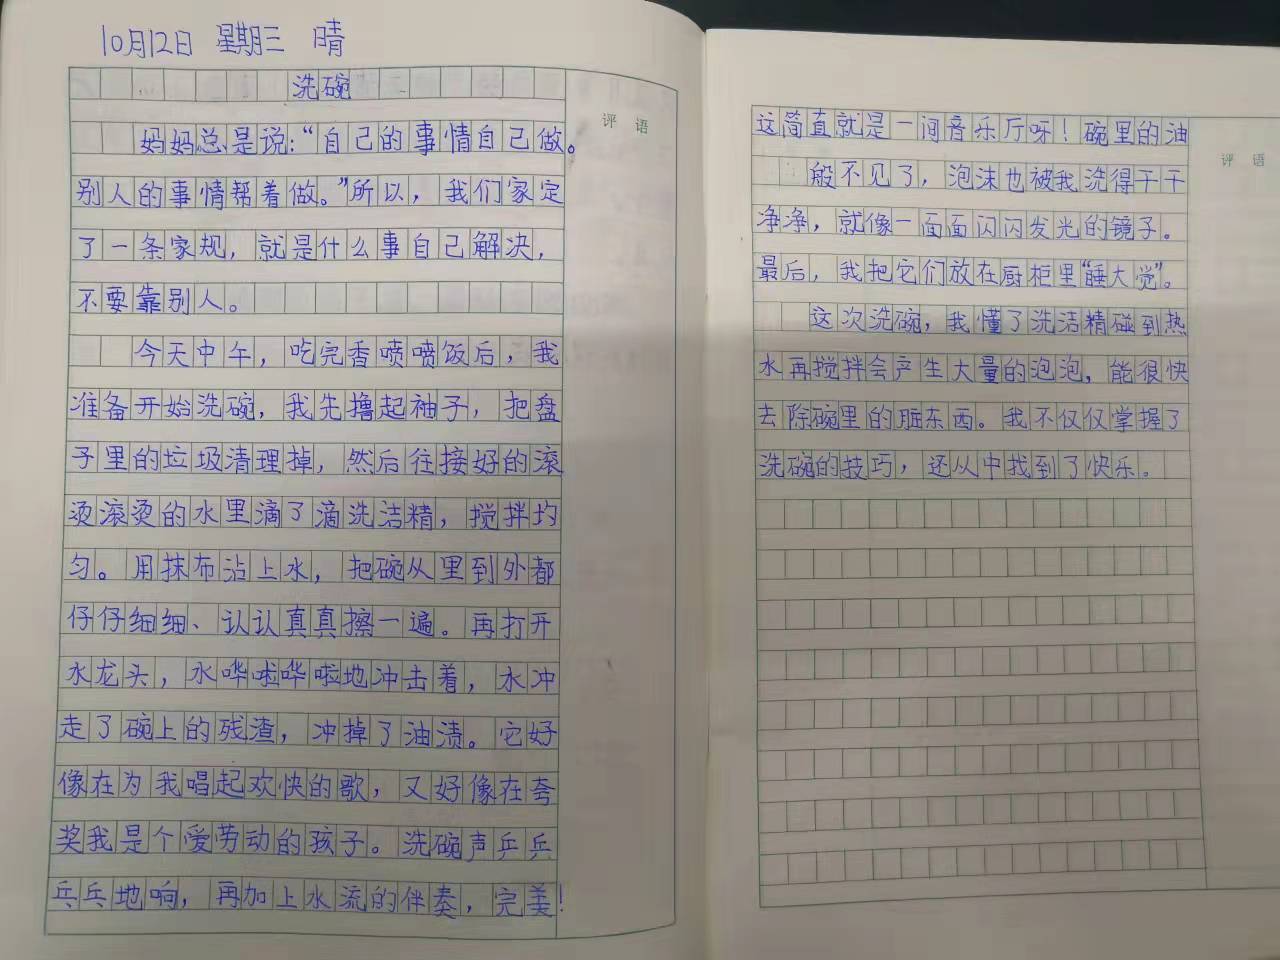 10月12日 星期三 晴
洗碗
妈妈总是说:“自己的事情自己做。
别人的事情帮着做。”所以，我们家定
了一条家规，就是什么事自己解决，
不要靠别人。
今天中午，吃完香喷喷饭后，我
准备开始洗碗，我先撸起袖子，把盘
子里的垃圾清理掉，然后往接好的滚
烫滚烫的水里滴了滴洗洁精，搅拌均
匀。用抹布沾上水，把碗从里到外都
仔仔细细、认认真真擦一遍。再打开
水龙头，水哗啦哗啦地冲击着，水冲
走了碗上的残渣，冲掉了油渍。它好
像在为我唱起欢快的歌，又好像在夸
奖我是个爱劳动的孩子。洗碗声乒乒
乓乓地响，再加上水流的伴奏，完美！
评 语
这简直就是一间音乐厅呀！碗里的油
般不见了，泡沫也被我洗得干干
净净，就像一面面闪闪发光的镜子。
最后，我把它们放在厨柜里“睡大觉”。
这次洗碗，我懂了洗洁精碰到热
水再搅拌会产生大量的泡泡，能很快
去除碗里的脏东西。我不仅仅掌握了
洗碗的技巧，还从中找到了快乐。
评 语